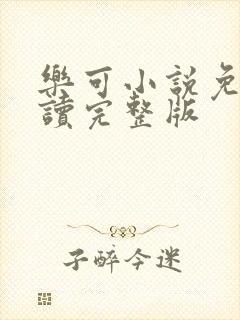 樂可小說免
讀完整版
子醉今迷